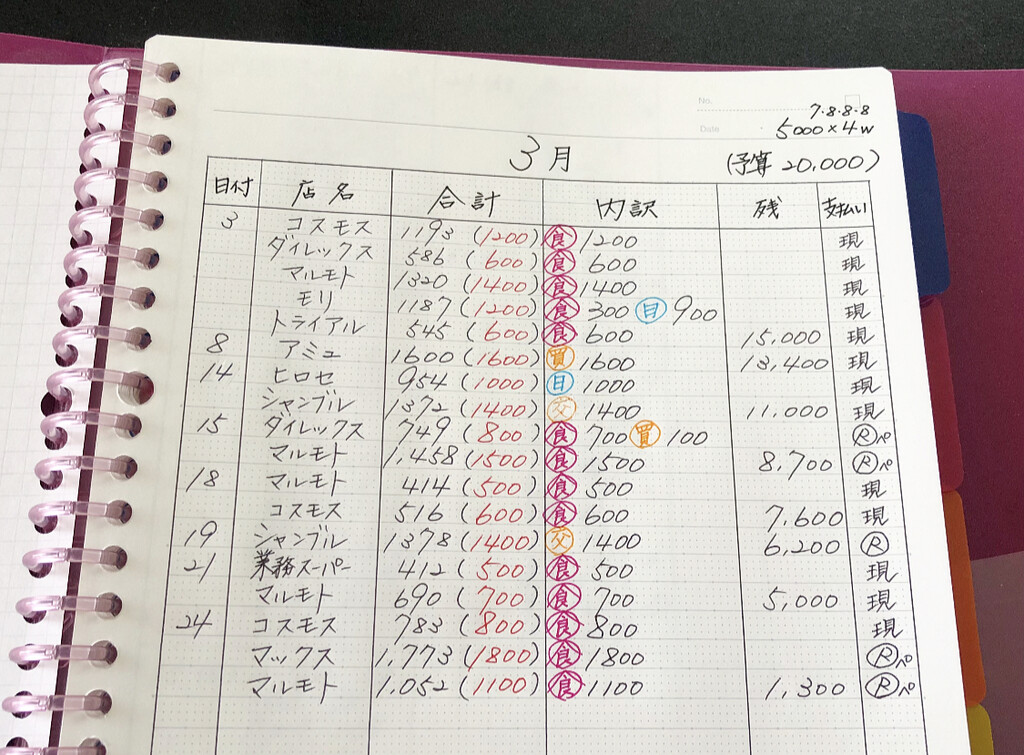 No.
7・8・8・8
Date
5000×4w
3月
(予算 20,000)
日付 店名 合計 内訳 残 支払い
3 コスモス 1193 (1200) 食 1200 現
ダイレックス 586 (600) 食 600 現
マルモト 1320 (1400) 食 1400 現
モリ 1187 (1200) 食 300 日 900 現
トライアル 545 (600) 食 600 15,000 現
8 アミュ 1600 (1600) 買 1600 13,400 現
14 ヒロセ 954 (1000) 日 1000 現
シャンブル 1372 (1400) 交 1400 11.000 現
15 ダイレックス 749 (800) 食 700 買 100 Ⓡペ
マルモト 1,458 (1500) 食 1500 8,700 Ⓡペ
18 マルモト 414 (500) 食 500 現
コスモス 516 (600) 食 600 7,600 現
19 シャンブル 1378 (1400) 交 1400 6,200 Ⓡ
21 業務スーパー 412 (500) 食 500 現
マルモト 690 (700) 食 700 5,000 現
24 コスモス 783 (800) 食 800 現
マックス 1,773 (1800) 食 1800 Ⓡペ
マルモト 1,052 (1100) 食 1100 1,300 Ⓡペ